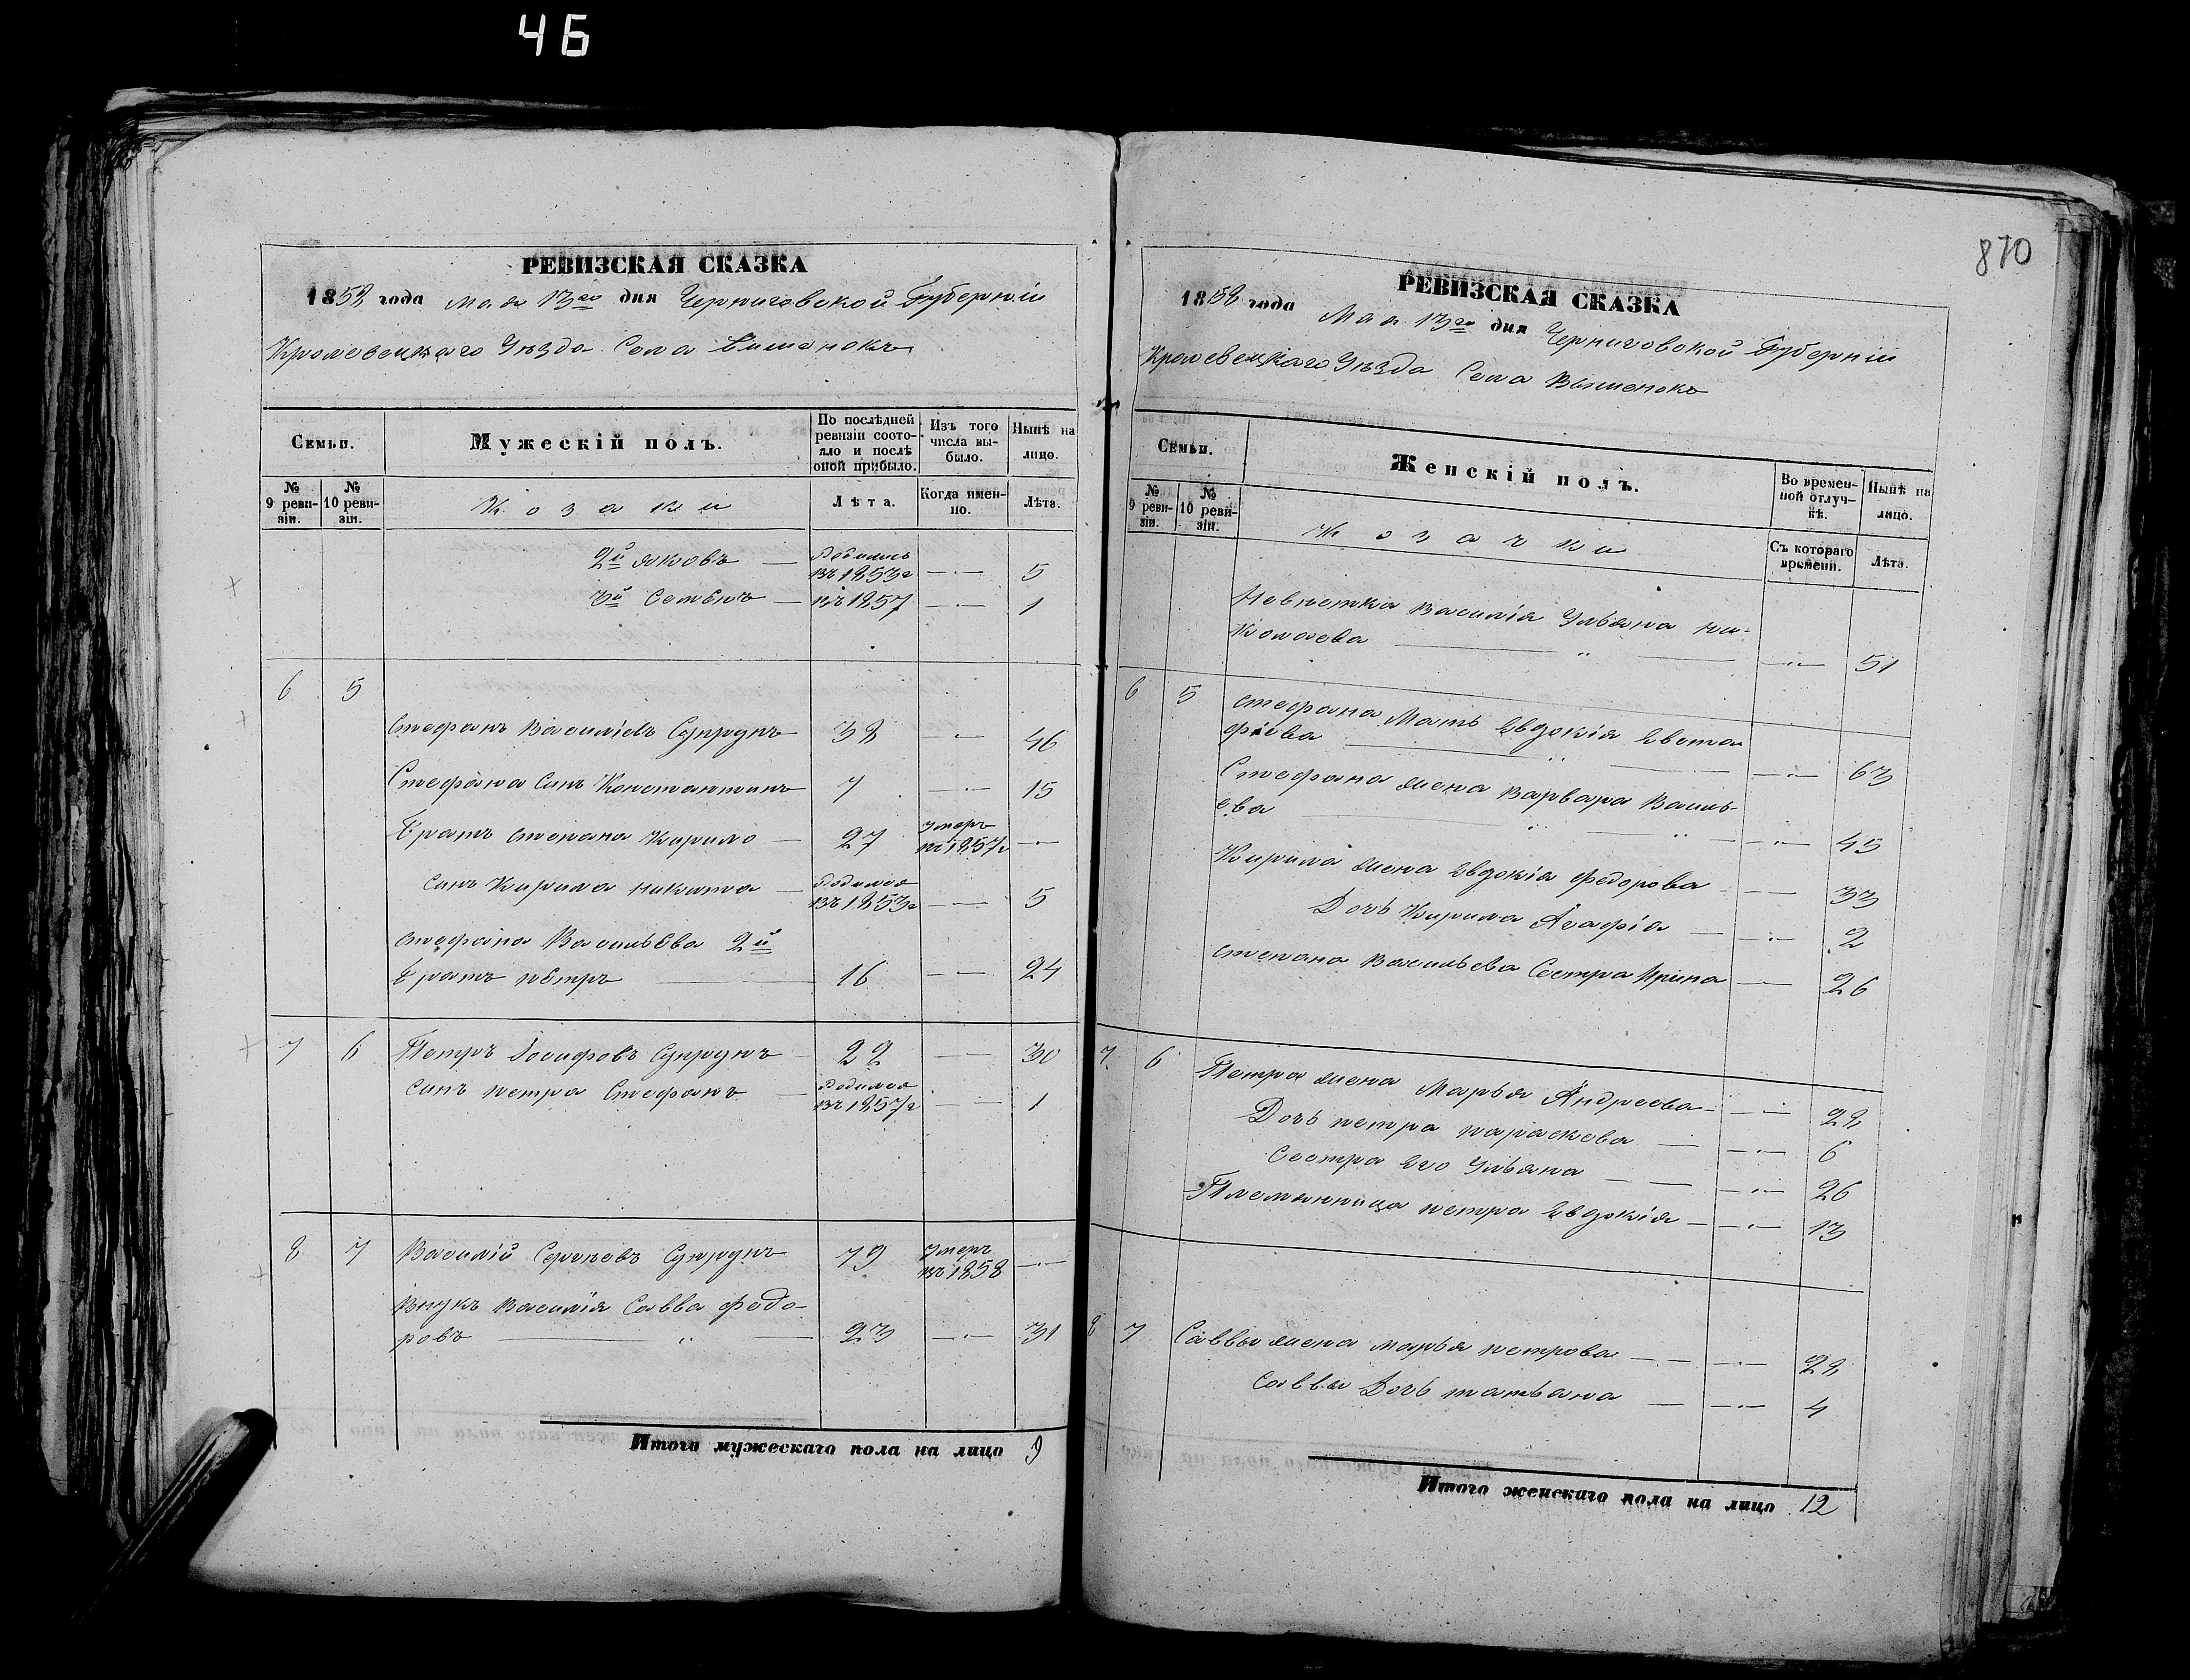 46
РЕВИЗСКАЯ СКАЗКА
1858 года Мая 13го дня Черниговской Губерніи
Кролевецкаго Уѣзда Села Вишенокъ
Семьи.
Мужескій полъ.
По послѣдней ревизіи состояло и послѣ оной прибыло.
Изъ того числа выбыло.
Нынѣ на лицо.
№ 9 ревизіи.
№ 10 ревизіи.
Козаки
Лѣта.
Когда именно.
Лѣта.
2й Яковъ — Родились въ 1853г — 5
3й Семенъ — въ 1857 — 1
6 5
Стефанъ Василіевъ Супрунъ 38 — 46
Стефана Синъ Константинъ 7 — 15
Братъ Степана Кирило — 27 Умеръ въ 1857г —
Синъ Кирила Никита — Родился въ 1853г — 5
Стефана Васильева 2й
братъ Петръ — 16 — 24
7 6 Петръ Іосифовъ Супрунъ 22 — 30
Синъ Петра Стефанъ — Родился въ 1857г — 1
8 7 Василій Сергѣевъ Супрунъ 79 Умеръ въ 1858 —
Внукъ Василія Савва Федо-
ровъ — 23 — 31
Итого мужескаго пола на лицо 9
870
РЕВИЗСКАЯ СКАЗКА
1858 года Мая 13го дня Черниговской Губерніи
Кролевецкаго Уѣзда Села Вишенокъ
Семьи.
Женскій полъ.
Во временной отлучкѣ.
Нынѣ на лицо.
№ 9 ревизіи.
№ 10 ревизіи.
Козачки
Съ котораго времени.
Лѣта.
Невѣстка Василія Ульяна Ни-
колаева — 51
6 5 Стефана Мать Евдокія Евста-
фіева — 63
Стефана жена Варвара Василь-
ева — 45
Кирила жена Евдокія Федорова — 33
Дочь Кирила Агафія — 2
Степана Васильева Сестра Ирина — 26
7 6 Петра жена Марья Андреева — 28
Дочь Петра Параскева — 6
Сестра Его Ульяна — 26
Племянница Петра Евдокія — 13
8 7 Саввы жена Марья Петрова — 28
Саввы Дочь Татьяна — 4
Итого женскаго пола на лицо 12